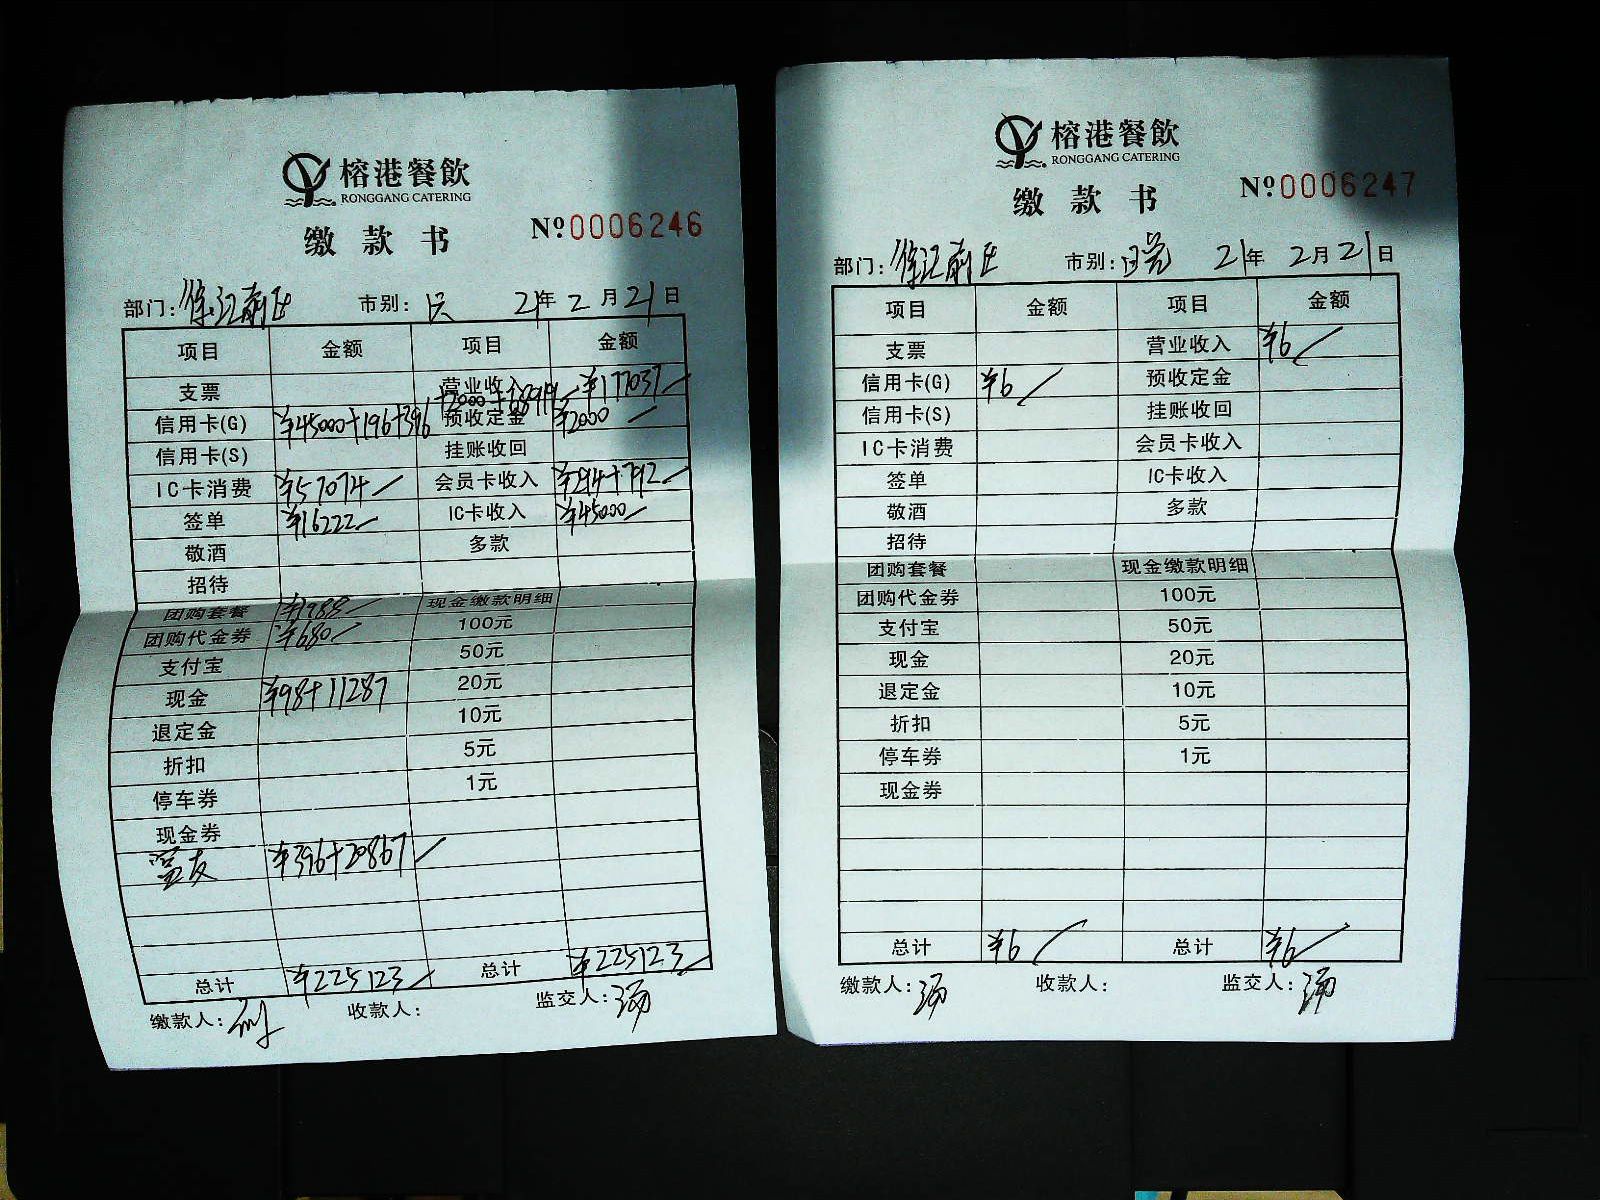 榕港餐飲
RONGGANG CATERING
缴款书
Nº0006246
部门:徐汇前区 市别: 21年2月21日
项目 金额 项目 金额
支票 营业收入 ¥177037
信用卡(G) ¥45000+196+396+2000+68919 预收定金 ¥2000
信用卡(S) 挂账收回
IC卡消费 ¥57074 会员卡收入 ¥294+792
签单 ¥16222 IC卡收入 ¥45000
敬酒 多款
招待
团购套餐 ¥1988 现金缴款明细
团购代金券 ¥680 100元
支付宝 50元
现金 ¥98+11287 20元
退定金 10元
折扣 5元
停车券 1元
现金券
¥396+20867
总计 ¥225123 总计 ¥225123
缴款人: 收款人: 监交人:汤
榕港餐飲
RONGGANG CATERING
缴款书
Nº0006247
部门:徐汇前区 市别: 21年2月21日
项目 金额 项目 金额
支票 营业收入 ¥6
信用卡(G) ¥6 预收定金
信用卡(S) 挂账收回
IC卡消费 会员卡收入
签单 IC卡收入
敬酒 多款
招待
团购套餐 现金缴款明细
团购代金券 100元
支付宝 50元
现金 20元
退定金 10元
折扣 5元
停车券 1元
现金券
总计 ¥6 总计 ¥6
缴款人:汤 收款人: 监交人:汤